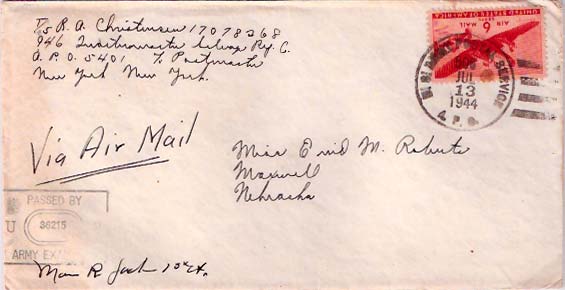 T/5 R. A. Christensen 17078268
946 Quartermaster Ry. C.
A.P.O. 5401 % Postmaster
New York New York.
AIR MAIL
UNITED STATES OF AMERICA
6
U.S. ARMY POSTAL SERVICE
JUL
13
1944
A.P.O.
Via Air Mail
Miss Enid M. Roberts
Maxwell
Nebraska
PASSED BY
U
36215
ARMY EX
R 1st Lt.